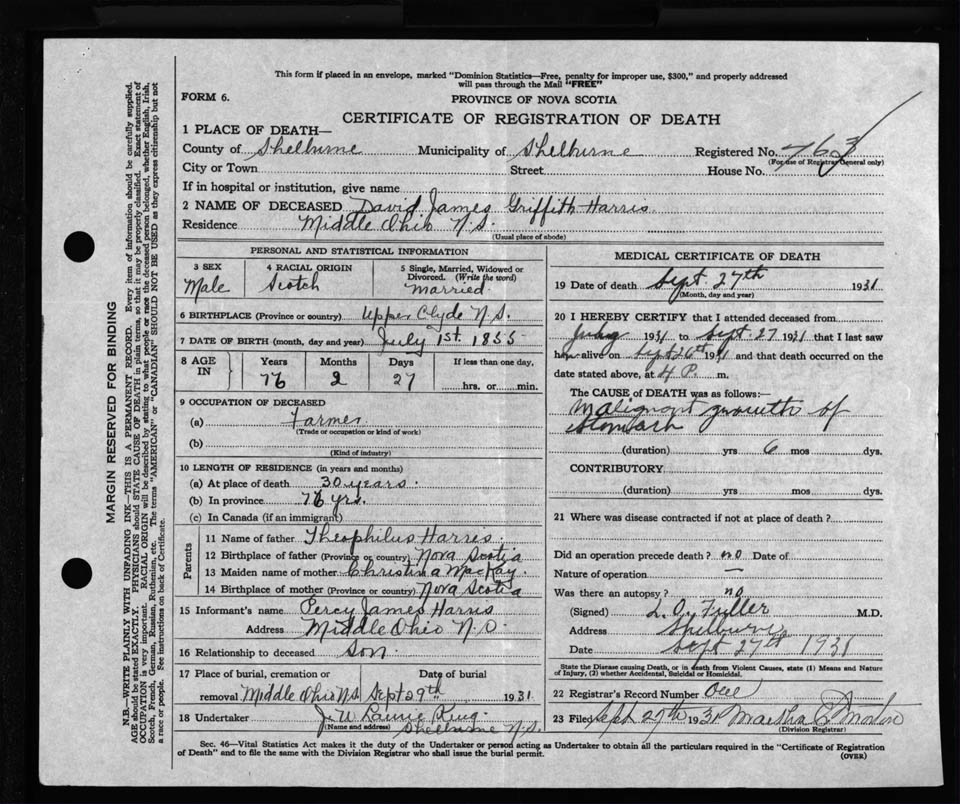 This form if placed in an envelope, marked "Dominion Statistics—Free, penalty for improper use, $300," and properly addressed
will pass through the Mail "FREE"
FORM 6.
PROVINCE OF NOVA SCOTIA
CERTIFICATE OF REGISTRATION OF DEATH
1 PLACE OF DEATH—
County of Shelburne Municipality of Shelburne Registered No. 763
(For use of Registrar General only)
City or Town Street House No.
If in hospital or institution, give name
2 NAME OF DECEASED David James Griffith Harris
Residence Middle Ohio N.S.
(Usual place of abode)
PERSONAL AND STATISTICAL INFORMATION
3 SEX 4 RACIAL ORIGIN 5 Single, Married, Widowed or Divorced. (Write the word)
Male Scotch Married
6 BIRTHPLACE (Province or country) Upper Clyde N.S.
7 DATE OF BIRTH (month, day and year) July 1st. 1855
8 AGE IN Years Months Days If less than one day,
76 2 27 hrs. or min.
9 OCCUPATION OF DECEASED
(a) Farmer
(Trade or occupation or kind of work)
(b)
(Kind of industry)
10 LENGTH OF RESIDENCE (in years and months)
(a) At place of death 30 years.
(b) In province 76 yrs.
(c) In Canada (if an immigrant)
Parents
11 Name of father Theophilus Harris
12 Birthplace of father (Province or country) Nova Scotia
13 Maiden name of mother Christina MacKay.
14 Birthplace of mother (Province or country) Nova Scotia
15 Informant's name Percy James Harris
Address Middle Ohio N.S.
16 Relationship to deceased Son
17 Place of burial, cremation or removal Date of burial
Middle Ohio N.S. Sept 29th 1931
18 Undertaker J. W. King
(Name and address) Shelburne N.S.
MEDICAL CERTIFICATE OF DEATH
19 Date of death Sept. 27th 1931
(Month, day and year)
20 I HEREBY CERTIFY that I attended deceased from
1931 to Sept. 27 1931 that I last saw
him alive on Sept 26th 1931 and that death occurred on the
date stated above, at 4 P. m.
The CAUSE OF DEATH was as follows:—
Malignant growth of
Stomach
(duration) yrs 6 mos dys.
CONTRIBUTORY
(duration) yrs. mos. dys.
21 Where was disease contracted if not at place of death?
Did an operation precede death? no Date of
Nature of operation —
Was there an autopsy? no
(Signed) L. O. Fuller M.D.
Address Shelburne
Date Sept 27th 1931
State the Disease causing Death, or in death from Violent Causes, state (1) Means and Nature
of Injury, (2) whether Accidental, Suicidal or Homicidal.
22 Registrar's Record Number
23 Filed Sept 27th 1931 Martha
(Division Registrar)
Sec. 46—Vital Statistics Act makes it the duty of the Undertaker or person acting as Undertaker to obtain all the particulars required in the "Certificate of Registration
of Death" and to file the same with the Division Registrar who shall issue the burial permit. (OVER)
MARGIN RESERVED FOR BINDING
N.B.—WRITE PLAINLY WITH UNFADING INK—THIS IS A PERMANENT RECORD. Every item of information should be carefully supplied.
AGE should be stated EXACTLY. PHYSICIANS should STATE CAUSE OF DEATH in plain terms, so that it may be properly classified. Exact statement of
OCCUPATION is very important. RACIAL ORIGIN will be described by stating to what people or race the deceased person belonged, whether English, Irish,
Scotch, French, German, Russian, Ruthenian, etc. The terms "AMERICAN" or "CANADIAN" SHOULD NOT BE USED as they express citizenship but not
a race or people. See instructions on back of Certificate.